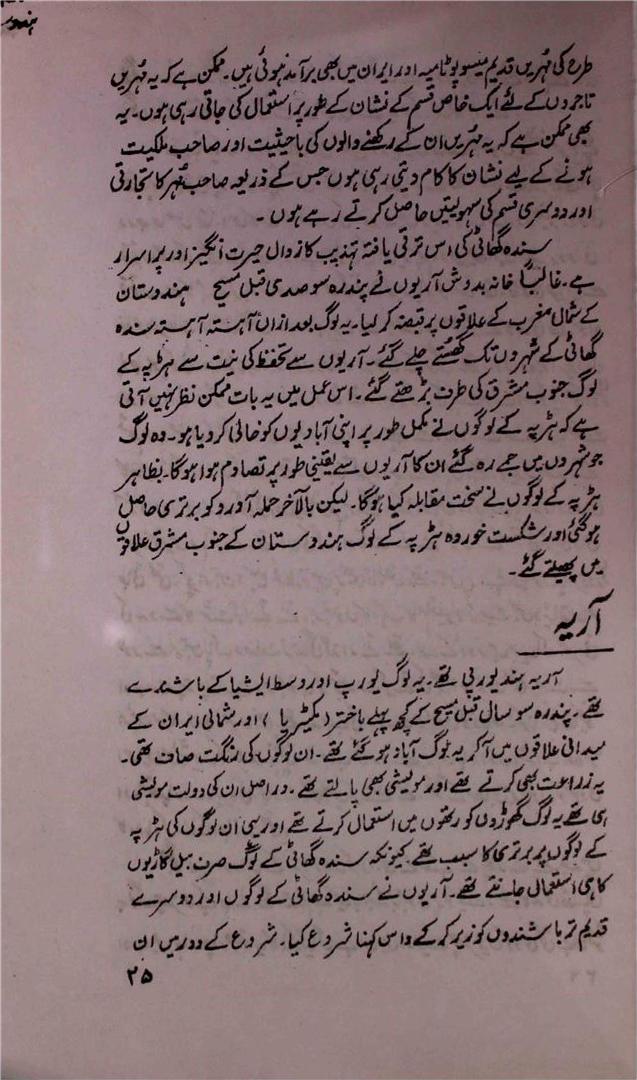 طرح کی مُہریں قدیم میسوپوٹامیہ اور ایران میں بھی برآمد ہوئی ہیں۔ ممکن ہے کہ یہ مُہریں
تاجروں کے لئے ایک خاص قسم کے نشان کے طور پر استعمال کی جاتی رہی ہوں۔ یہ
بھی ممکن ہے کہ یہ مُہریں ان کے رکھنے والوں کی باحیثیت اور صاحب ملکیت
ہونے کے لیے نشان کا کام دیتی رہی ہوں جس کے ذریعہ صاحب مُہر کا تجارتی
اور دوسری قسم کی سہولیتیں حاصل کرتے رہے ہوں۔
سندھ گھاٹی کی اس ترقی یافتہ تہذیب کا زوال حیرت انگیز اور پر اسرار
ہے۔ غالباً خانہ بدوش آریوں نے پندرہ سو صدی قبل مسیح ہندوستان
کے شمال مغرب کے علاقوں پر قبضہ کر لیا۔ یہ لوگ بعد ازاں آہستہ آہستہ سندھ
گھاٹی کے شہروں تک گھستے چلے گئے۔ آریوں سے تحفظ کی نیت سے ہڑپہ کے
لوگ جنوب مشرق کی طرف بڑھتے گئے۔ اس عمل میں یہ بات ممکن نظر نہیں آتی
ہے کہ ہڑپہ کے لوگوں نے مکمل طور پر اپنی آبادیوں کو خالی کر دیا ہو۔ وہ لوگ
جو شہروں میں جمے رہ گئے ان کا آریوں سے یقینی طور پر تصادم ہوا ہوگا۔ بظاہر
ہڑپہ کے لوگوں نے سخت مقابلہ کیا ہوگا۔ لیکن بالآخر حملہ آورد کو برتری حاصل
ہو گئی اور شکست خوردہ ہڑپہ کے لوگ ہندوستان کے جنوب مشرق علاقوں
میں پھیلتے گئے۔
آریہ
آریہ ہند یورپی تھے۔ یہ لوگ یورپ اور وسط ایشیا کے باشندے
تھے۔ پندرہ سو سال قبل مسیح کے کچھ پہلے باختر (بکٹیریا) اور شمالی ایران کے
میدانی علاقوں میں آکر یہ لوگ آباد ہو گئے تھے۔ ان لوگوں کی رنگت صاف تھی۔
یہ زراعت بھی کرتے تھے اور مویشی بھی پالتے تھے۔ دراصل ان کی دولت مویشی
ہی تھے یہ لوگ گھوڑوں کو رتھوں میں استعمال کرتے تھے اور یہی ان لوگوں کی ہڑپہ
کے لوگوں پر برتری کا سبب تھے کیونکہ سندھ گھاٹی کے لوگ صرف بیل گاڑیوں
کا ہی استعمال جانتے تھے۔ آریوں نے سندھ گھاٹی کے لوگوں اور دوسرے
قدیم تر باشندوں کو زیر کرکے داس کہنا شروع کیا۔ شروع کے دور میں ان
۲۵